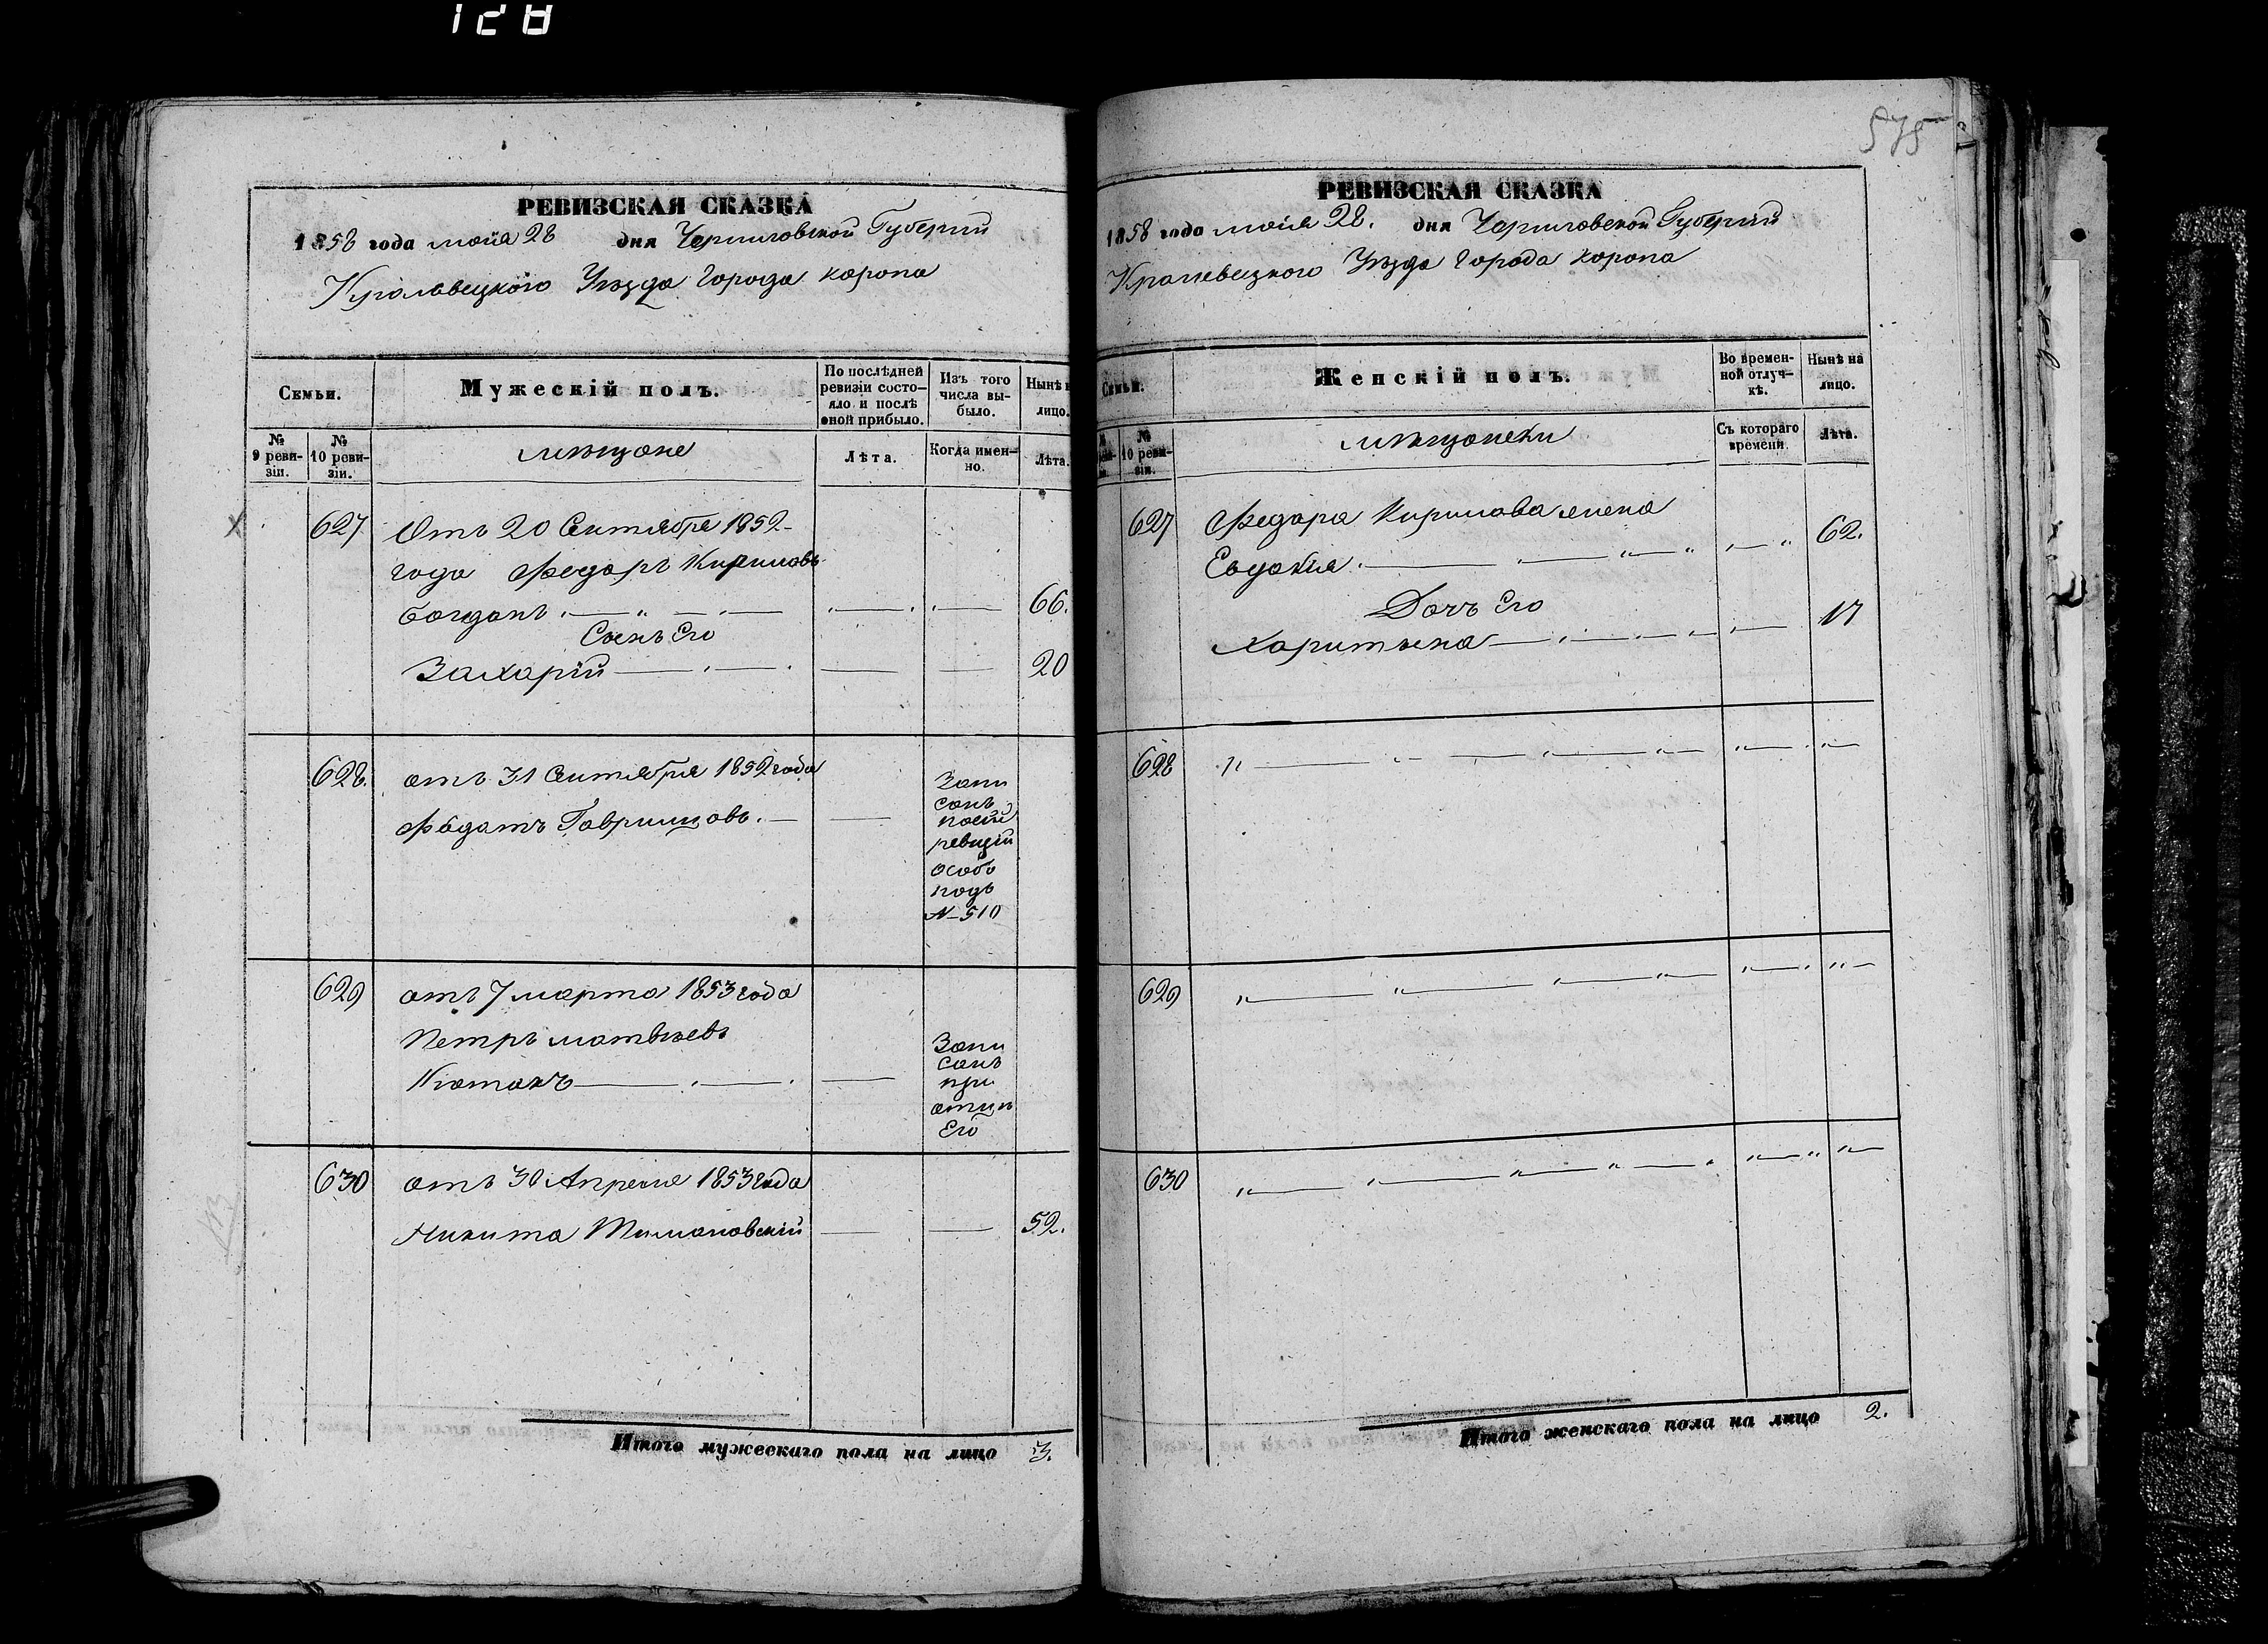 128
РЕВИЗСКАЯ СКАЗКА
1858 года мая 28 дня Черниговской Губерніи
Кролевецкого Уѣзда Города Коропа
Семьи.
Мужескій полъ.
По послѣдней ревизіи состо-
яло и послѣ
оной прибыло.
Изъ того
числа вы-
было.
Нынѣ н
лицо.
№
9 реви-
зіи.
№
10 реви-
зіи.
мѣщане
Лѣта.
Когда имен-
но.
Лѣта.
627 Отъ 20 Сентября 1852-
года Федоръ Кириловъ
Богданъ 66.
Сынъ Его
Захарій 20
628. отъ 31 Сентября 1852 года
Федотъ Гаврищовъ.
Запи
санъ
ревизіи
особо
подъ
№ 510
629 отъ 7 марта 1853 года
Петръ матвѣевъ
Запи
санъ
при
отцѣ
Его
630 отъ 30 Апреля 1853 года
Никита Тимоновскій 52.
Итого мужескаго пола на лицо 3.
575
РЕВИЗСКАЯ СКАЗКА
1858 года мая 28. дня Черниговской Губерніи
Кролевецкого Уѣзда Города Коропа
Семьи.
Женскій полъ.
Во времен-
ной отлуч-
кѣ.
Нынѣ на
лицо.
№
10 реви-
зіи.
мѣщанеки
Съ котораго
времени.
Лѣта.
627 Федора Кирилова жена
Евдокія 62.
Дочъ Его
Харитына 17
628
629
630
Итого женскаго пола на лицо 2.